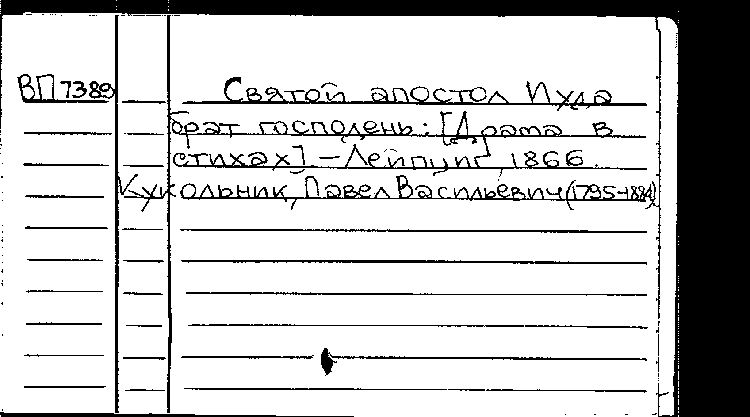 ВП7389 Святой апостол Иуда
брат господень: [Драма в
стихах]. – Лейпциг, 1866.
Кукольник, Павел Васильевич (1795-1884)